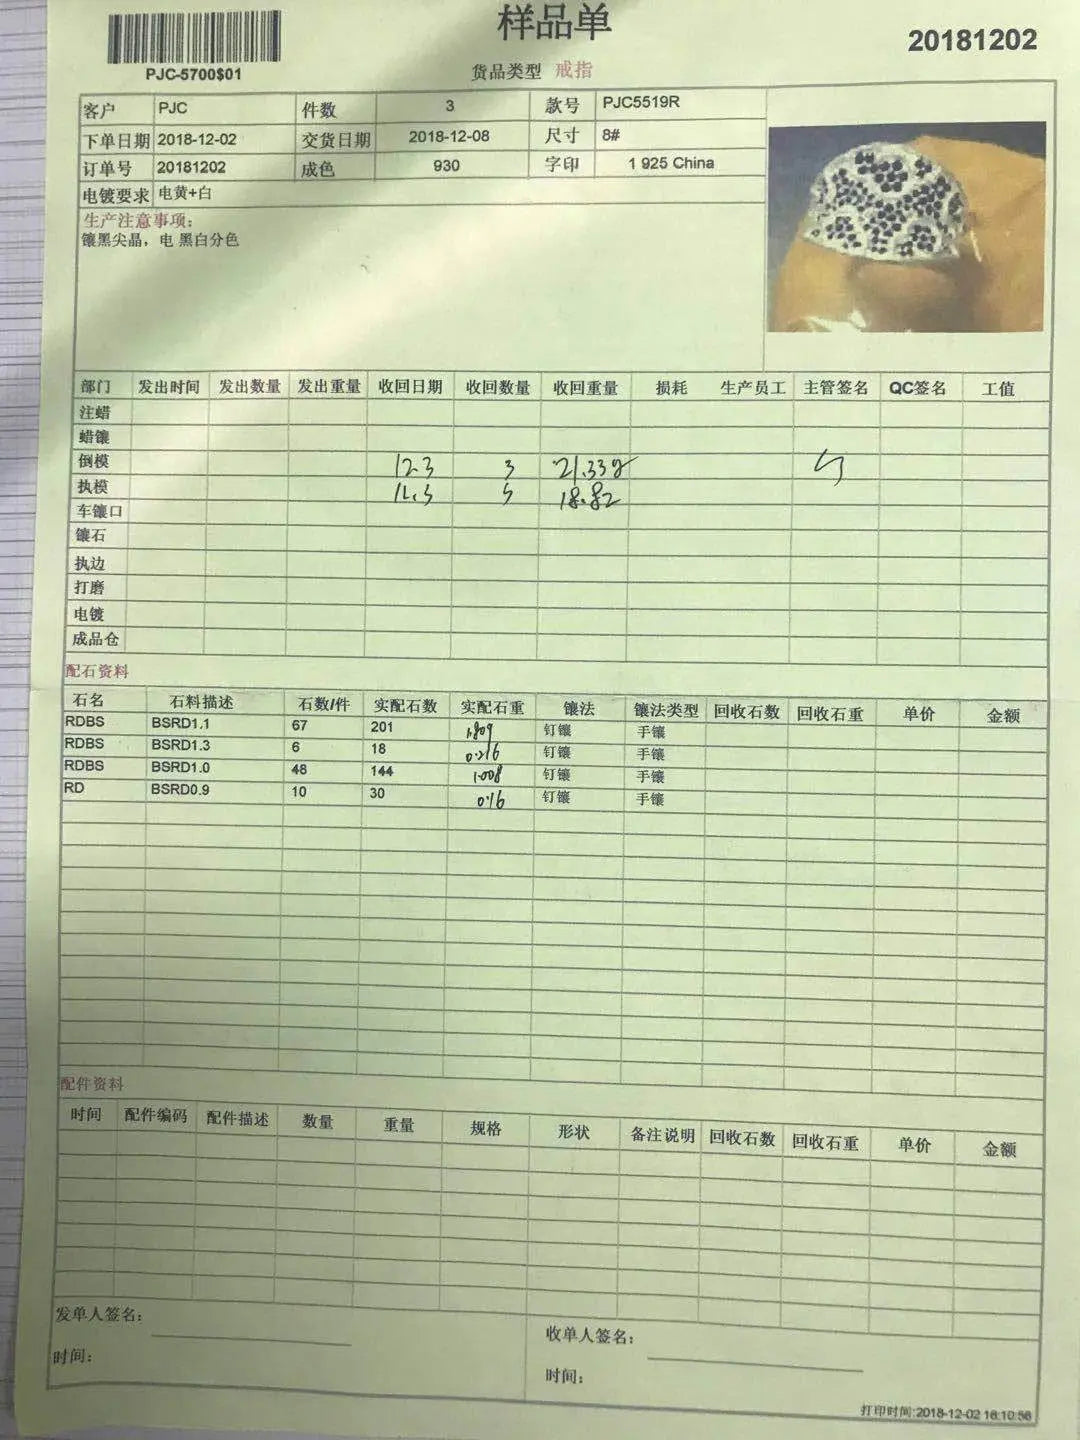 样品单
20181202
PJC-5700$01
货品类型 戒指
客户 PJC 件数 3 款号 PJC5519R
下单日期 2018-12-02 交货日期 2018-12-08 尺寸 8#
订单号 20181202 成色 930 字印 1 925 China
电镀要求 电黄+白
生产注意事项:
镶黑尖晶，电 黑白分色
部门 发出时间 发出数量 发出重量 收回日期 收回数量 收回重量 损耗 生产员工 主管签名 QC签名 工值
注蜡
蜡镶
倒模 12.3 3 21.33g
执模 18.82
车镶口
镶石
执边
打磨
电镀
成品仓
配石资料
石名 石料描述 石数/件 实配石数 实配石重 镶法 镶法类型 回收石数 回收石重 单价 金额
RDBS BSRD1.1 67 201 1.809 钉镶 手镶
RDBS BSRD1.3 6 18 0.216 钉镶 手镶
RDBS BSRD1.0 48 144 1.008 钉镶 手镶
RD BSRD0.9 10 30 0.16 钉镶 手镶
配件资料
时间 配件编码 配件描述 数量 重量 规格 形状 备注说明 回收石数 回收石重 单价 金额
发单人签名:
收单人签名:
时间:
时间:
打印时间:2018-12-02 16:10:56